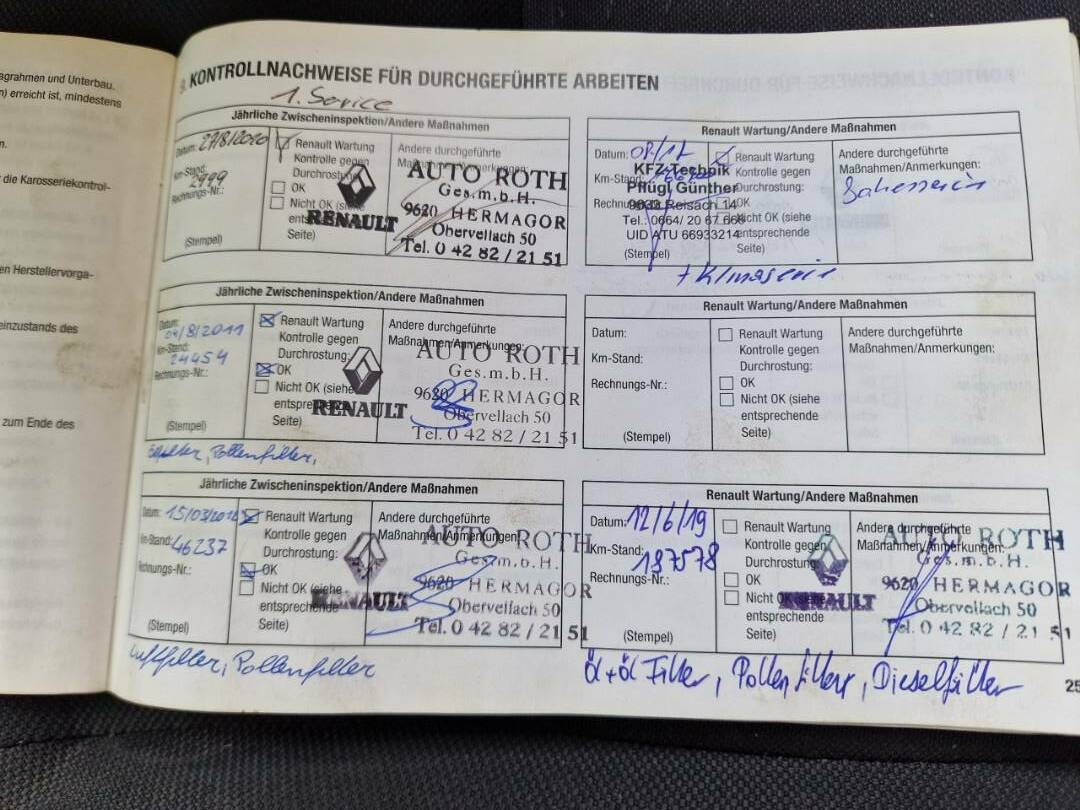 agrahmen und Unterbau.
n) erreicht ist, mindestens
n.
die Karosseriekontrol-
en Herstellervorga-
einzustands des
zum Ende des
9. KONTROLLNACHWEISE FÜR DURCHGEFÜHRTE ARBEITEN
1. Service
Jährliche Zwischeninspektion/Andere Maßnahmen
Datum: 27/8/2010
Km-Stand: 2999
Rechnungs-Nr.:
(Stempel)
Renault Wartung
Kontrolle gegen
Durchrostung:
OK
Nicht OK (siehe
entsprechende
Seite)
Andere durchgeführte
Maßnahmen/Anmerkungen:
RENAULT
AUTO ROTH
Ges.m.b.H.
9620 HERMAGOR
Obervellach 50
Tel. 0 42 82 / 21 51
Renault Wartung/Andere Maßnahmen
Datum:
Km-Stand:
Rechnungs-Nr.:
(Stempel)
Renault Wartung
Kontrolle gegen
Durchrostung:
OK
Nicht OK (siehe
entsprechende
Seite)
Andere durchgeführte
Maßnahmen/Anmerkungen:
KFZ-Technik
Pflügl Günther
9633 Reisach 14
Tel.: 0664/ 20 67 666
UID ATU 66933214
Jährliche Zwischeninspektion/Andere Maßnahmen
Datum: 04/8/2011
Km-Stand: 24454
Rechnungs-Nr.:
(Stempel)
Renault Wartung
Kontrolle gegen
Durchrostung:
OK
Nicht OK (siehe
entsprechende
Seite)
Andere durchgeführte
Maßnahmen/Anmerkungen:
RENAULT
AUTO ROTH
Ges.m.b.H.
9620 HERMAGOR
Obervellach 50
Tel. 0 42 82 / 21 51
Pollenfilter,
Renault Wartung/Andere Maßnahmen
Datum:
Km-Stand:
Rechnungs-Nr.:
(Stempel)
Renault Wartung
Kontrolle gegen
Durchrostung:
OK
Nicht OK (siehe
entsprechende
Seite)
Andere durchgeführte
Maßnahmen/Anmerkungen:
Jährliche Zwischeninspektion/Andere Maßnahmen
Datum: 15/03/2012
Km-Stand: 46237
Rechnungs-Nr.:
(Stempel)
Renault Wartung
Kontrolle gegen
Durchrostung:
OK
Nicht OK (siehe
entsprechende
Seite)
Andere durchgeführte
Maßnahmen/Anmerkungen:
RENAULT
AUTO ROTH
Ges.m.b.H.
9620 HERMAGOR
Obervellach 50
Tel. 0 42 82 / 21 51
Luftfilter, Pollenfilter
Renault Wartung/Andere Maßnahmen
Datum: 12/6/19
Km-Stand: 187578
Rechnungs-Nr.:
(Stempel)
Renault Wartung
Kontrolle gegen
Durchrostung:
OK
Nicht OK (siehe
entsprechende
Seite)
Andere durchgeführte
Maßnahmen/Anmerkungen:
RENAULT
AUTO ROTH
Ges.m.b.H.
9620 HERMAGOR
Obervellach 50
Tel. 0 42 82 / 21 51
Öl + Öl Filter, Pollenfilter, Dieselfilter
25